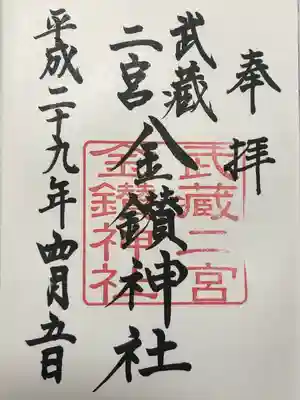 奉拝
武蔵二宮
金鑚神社
平成二十九年四月五日
武蔵二宮
金鑚神社